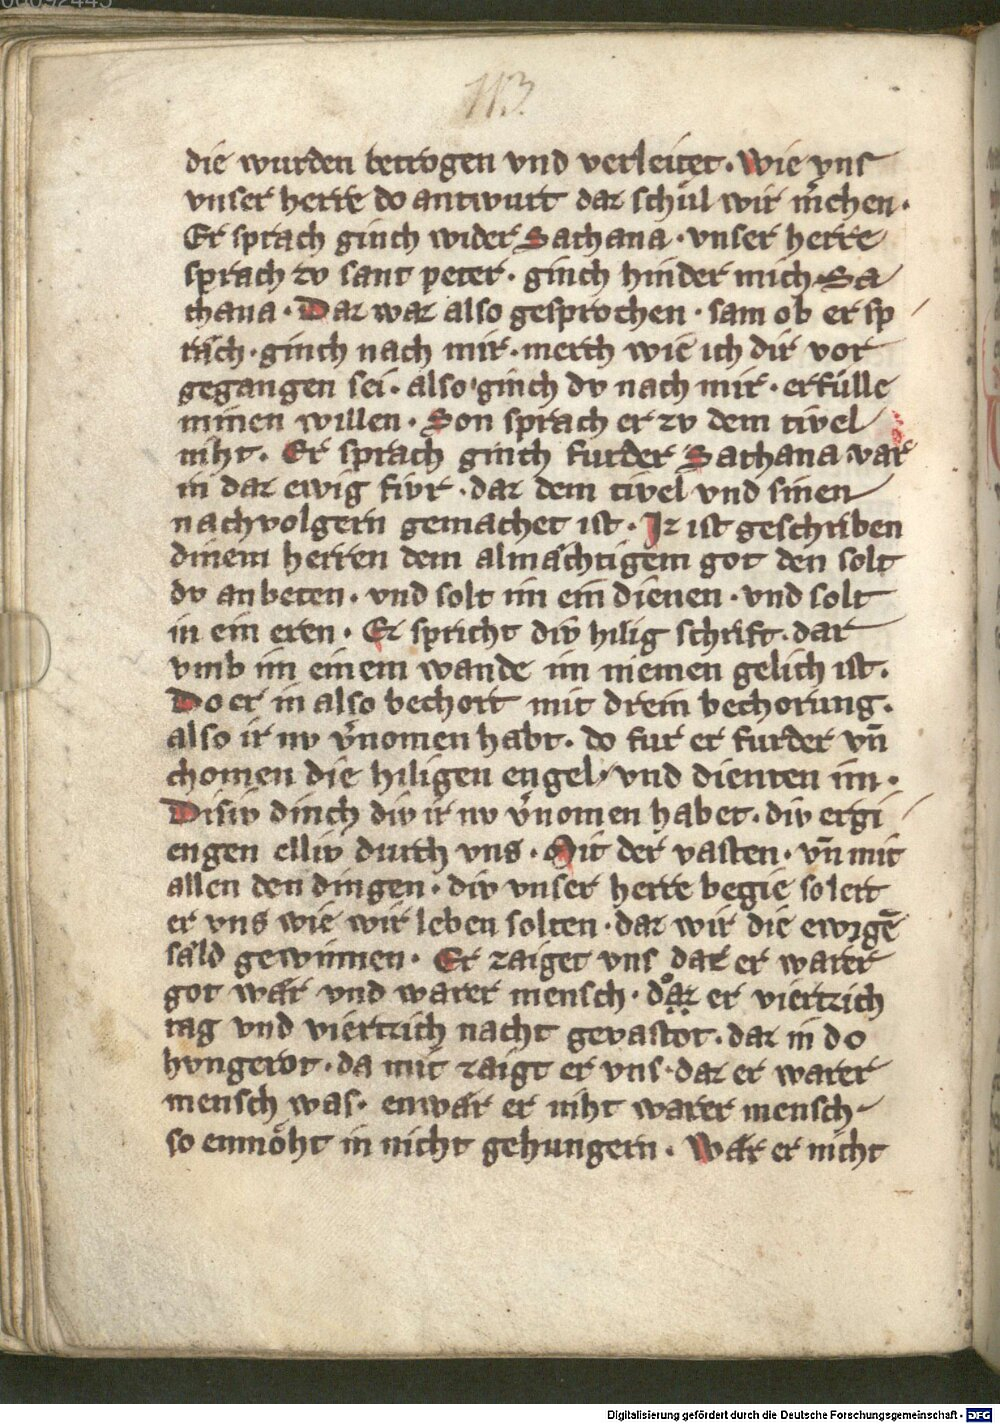 113.
die wurden betrogen vnd verleitet. Wie vns
vnser herre do antwurt daz schůl wir m̾chen.
Er sprach ginch wider Sathana. vnser herre
sprach zv sant peter. ginch hinder mich Sa
thana. Daz waz also gesprochen. sam ob er sp
rach. ginch nach mir. merch wie ich dir vor
gegangen sei. also ginch dv nach mir. erfülle
minen willen. Son sprach er zv dem tivel
niht. Er sprach ginch furder Sathana. var
in daz ewig fivr. daz dem tivel vnd sinen
nachvolgern gemachet ist. Iz ist geschriben
dinem herren dem almåchtigem got den solt
dv anbeten. vnd solt im ein dienen. vnd solt
in ein eren. Ez spricht div hilig schrift. dar
vmb im einem wande im niemen gelich ist.
Do er in also bechort mit drein bechorung.
also ir nv v̾nomen habt. do fur er furder vn̄
chomen die hiligen engel. vnd dienten im.
Disiv dinch div ir nv v̾nomen habet. div ergi
engen elliv durch vns. Mit der vasten. vn̄ mit
allen den dingen. div vnser herre begie so lert
er vns wie wir leben solten. daz wir die ewigē
såld gewinnen. Er zaiget vns daz er warer
got wår vnd warer mensch. do er viertzich
tag vnd viertzich nacht gevastot. daz in do
hvngerot. da mit zaigt er vns. daz er warer
mensch was. enwår er niht warer mensch
so enmöht in nicht gehungern. Wår er nicht
Digitalisierung gefördert durch die Deutsche Forschungsgemeinschaft - DFG